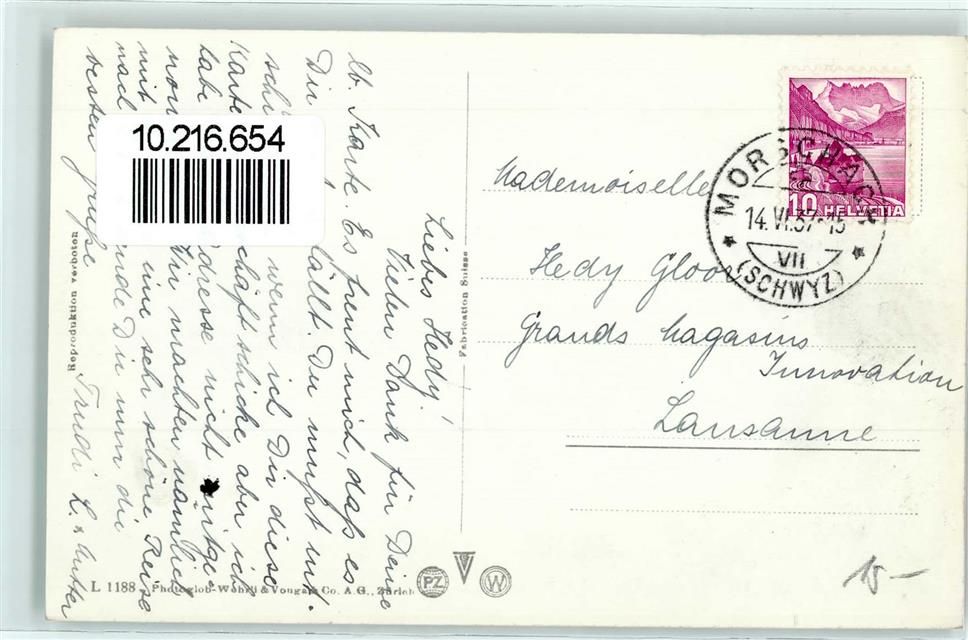 Liebes Hedy!
Vielen Dank für Deine
lb. Karte. Es freut mich, daß es
Dir gefällt. Du mußt nut.
schi wenn ich Dir diese
Karte schäft schicke aber ich
habe dresse nicht
mor Wir machten nämlich
mit eine sehr schöne Reise
nach Dir nun die
besten Grüße
Trudi L.
10.216.654
Reproduktion verboten
Fabrication Suisse
L 1188 Photoglob-Wehrli & Vouga & Co. A.G., Zürich
PZ
V
W
10 HELVETIA
MORSCHACH
14.VI.37-15
VII
(SCHWYZ)
Mademoiselle
Hedy Gloor
Grands Magasins
Innovation
Lausanne
15 –